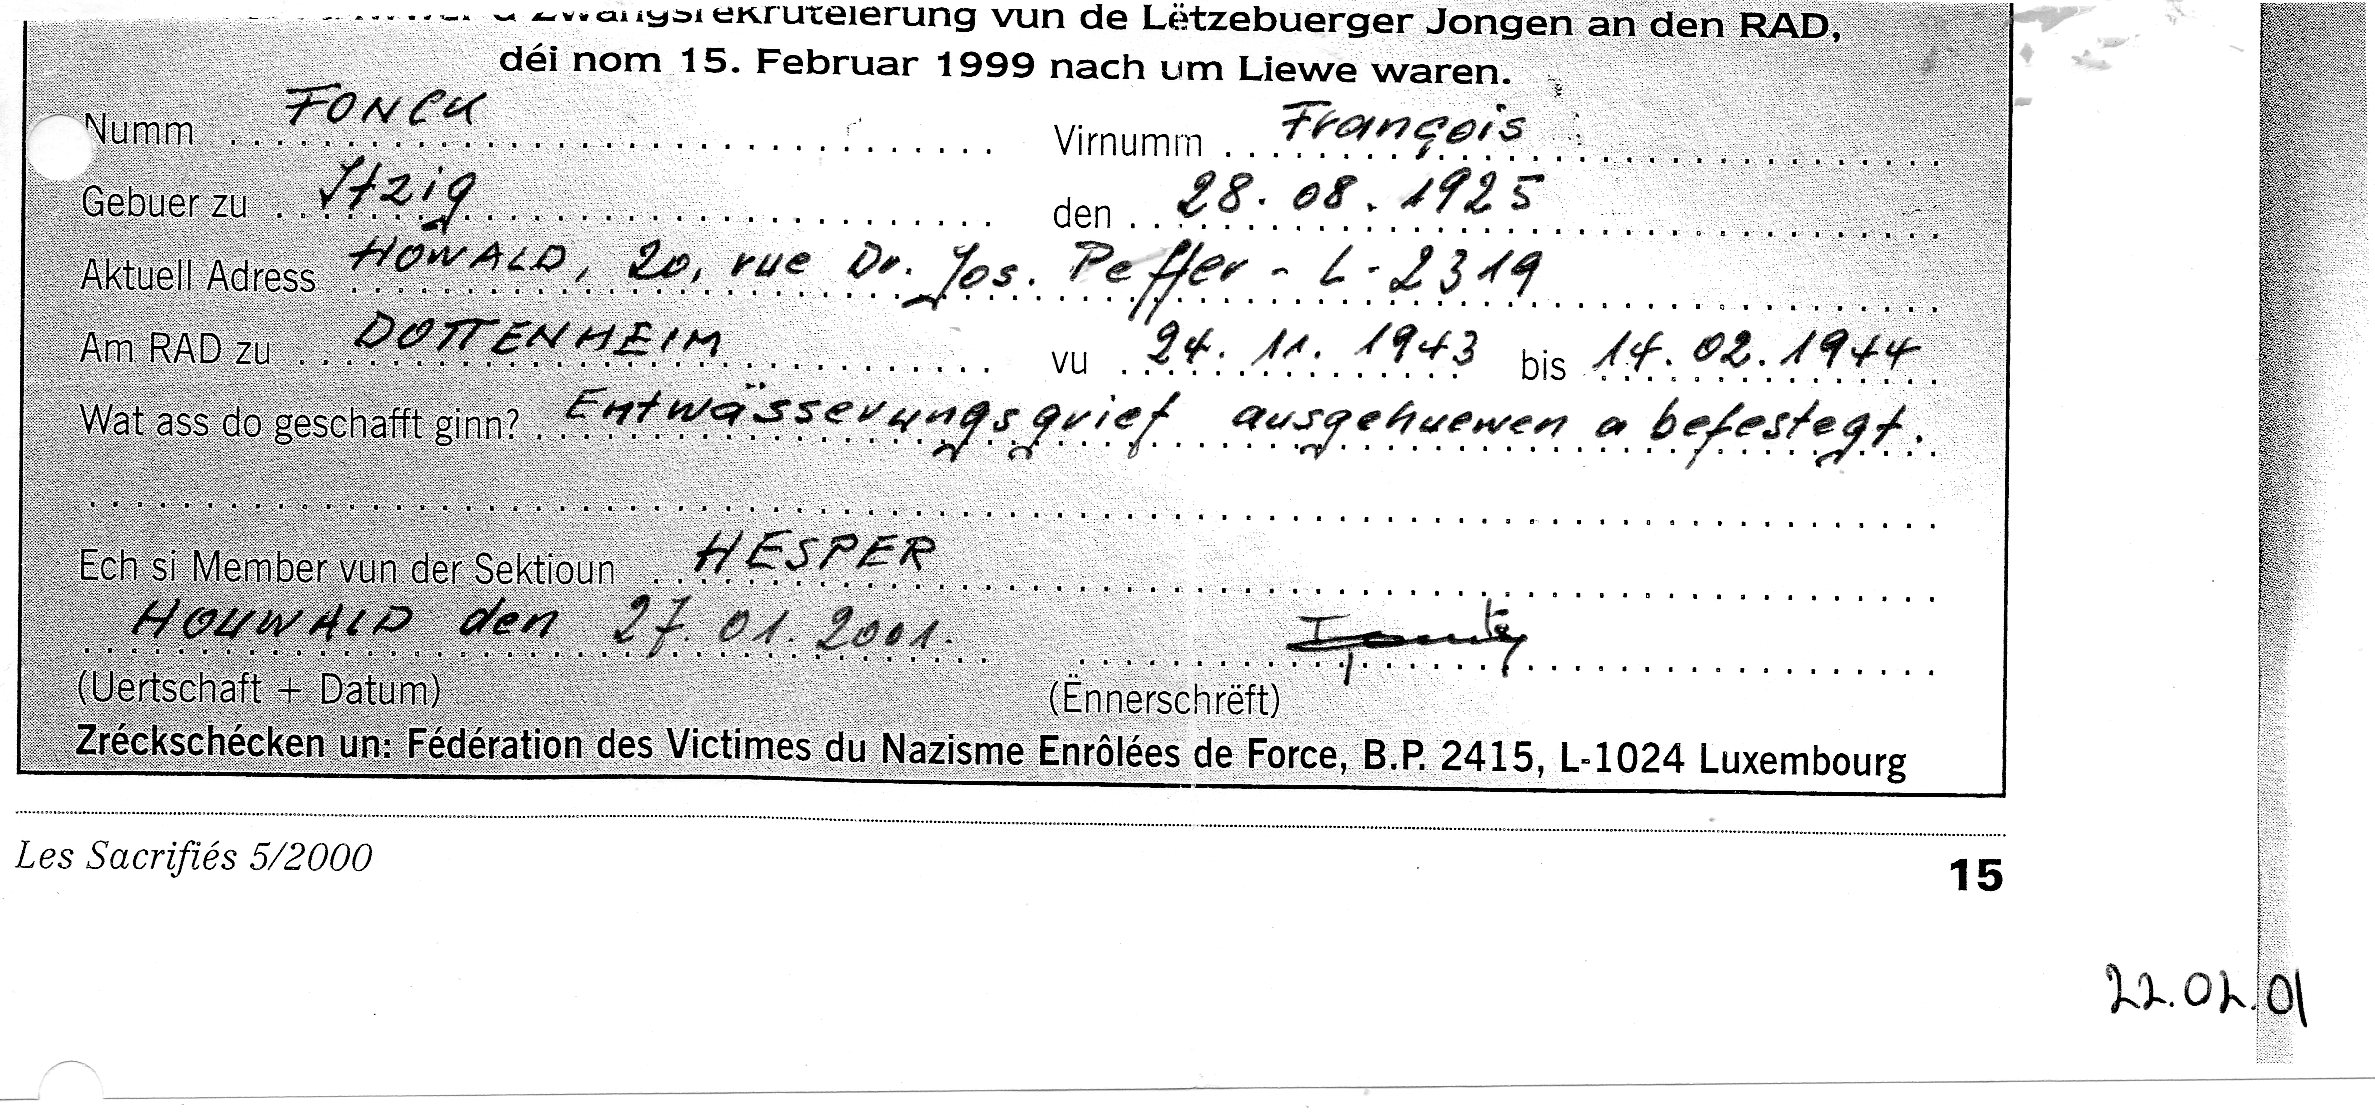 Zwangsrekrutéierung vun de Lëtzebuerger Jongen an den RAD,
déi nom 15. Februar 1999 nach um Liewe waren.
Numm FONCK Virnumm François
Gebuer zu Itzig den 28.08.1925
Aktuell Adress HOWALD, 20, rue Dr. Jos. Peffer - L-2319
Am RAD zu DOTTENHEIM vu 24.11.1943 bis 14.02.1944
Wat ass do geschafft ginn? Entwässerungsgrief ausgehuewen a befestegt.
Ech si Member vun der Sektioun HESPER
HOUWALD den 27.01.2001.
(Uertschaft + Datum) (Ënnerschrëft)
Zréckschécken un: Fédération des Victimes du Nazisme Enrôlées de Force, B.P. 2415, L-1024 Luxembourg
Les Sacrifiés 5/2000 15
22.02.01